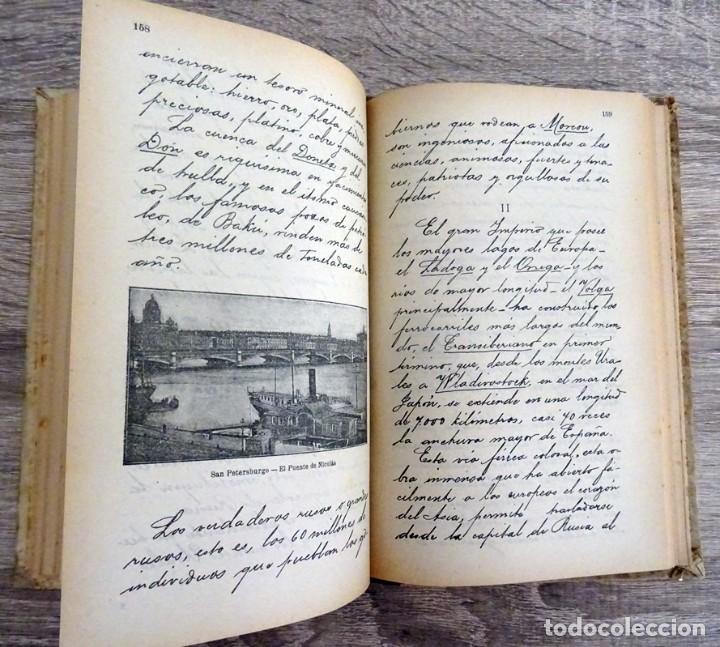 158
encierran un tesoro mineral ina
gotable: hierro, oro, plata, piedras
preciosas, platino, cobre y mercurio.
La cuenca del Donetz y del
Don es riquísima en yacimientos
de hulla, y en el itsmo caucási
co, los famosos pozos de petró
leo, de Bakú, rinden más de
tres millones de toneladas cada
año.
San Petersburgo — El Puente de Nicolás
Los verdaderos rusos o grandes
rusos, esto es, los 60 millones de
individuos que pueblan los go
159
biernos que rodean a Moscou,
son ingeniosos, aficionados a las
ciencias, animosos, fuertes y tena
ces, patriotas y orgullosos de su
poder.
II
El gran Imperio que posee
los mayores lagos de Europa—
el Ládoga y el Onega—y los
ríos de mayor longitud—el Volga
principalmente—ha construido los
ferrocarriles más largos del mun
do, el Transiberiano en primer
término, que, desde los montes Ura
les a Wladivostock, en el mar del
Japón, se extiende en una longitud
de 7000 kilómetros, casi 70 veces
la anchura mayor de España.
Esta vía férrea colosal, esta o
bra inmensa que ha abierto fá
cilmente a los europeos el corazón
del Asia, permite trasladarse
desde la capital de Rusia al
todocoleccion
todocoleccion.net